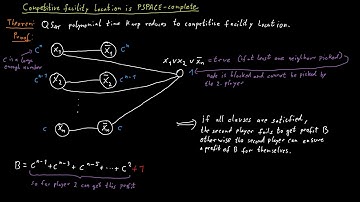 Competitive facility Location is PSPACE-complete
Theorem: QSat polynomial time Karp reduces to competitive facility location.
Proof:
Cⁿ x₁ x̄₁ Cⁿ
C is a large enough number
x₁ ∨ x₂ ∨ x̄ₙ = true (if at least one neighbor picked)
1
Node is blocked and cannot be picked by the 2-player
Cⁿ⁻¹ x₂ x̄₂ Cⁿ⁻¹
C xₙ x̄ₙ C
if all clauses are satisfied,
the second player fails to get profit B
otherwise the second player can ensure
a profit of B for themselves.
B = Cⁿ⁻¹ + Cⁿ⁻³ + Cⁿ⁻⁵ + ... + C² + 1
so far player 2 can get this profit